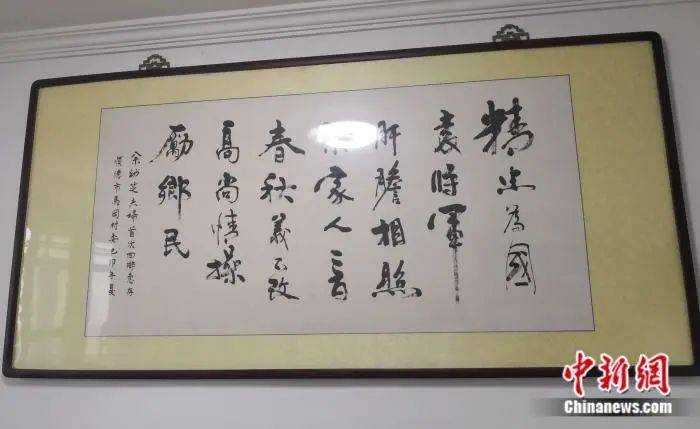 精忠為國
袁將軍
肝膽相照
佘家人三百
春秋義不改
高尚情操
勵鄉民
佘幼芝夫婦首次回鄉惠存
順德市馬岡村委己卯年夏
中新網
Chinanews.com